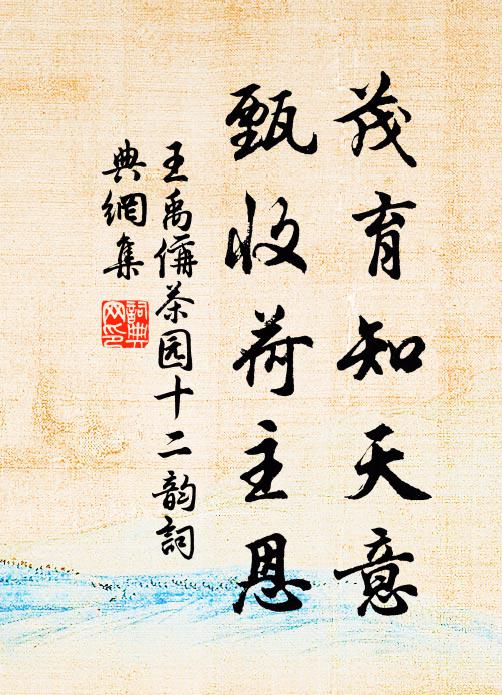 茂育知天意
甄收荷主恩
王禹偁茶园十二韵詞
典網集
詞典
网印